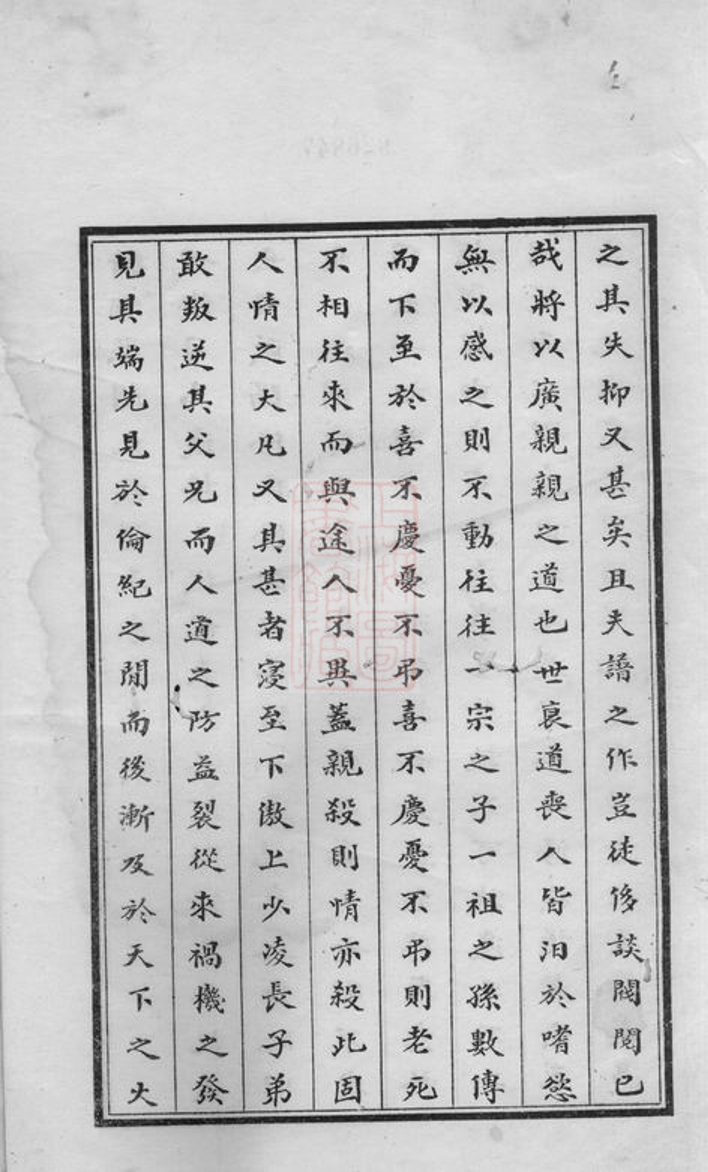 之其失抑又甚矣且夫譜之作豈徒侈談閥閱已
哉將以廣親親之道也世衰道喪人皆汩於嗜慾
無以感之則不動往往一宗之子一祖之孫數傳
而下至於喜不慶憂不弔喜不慶憂不弔則老死
不相往來而與途人不異蓋親殺則情亦殺此固
人情之大凡又其甚者寖至下傲上少凌長子弟
敢叛逆其父兄而人道之防益裂從來禍機之發
見其端先見於倫紀之間而後漸及於天下之大